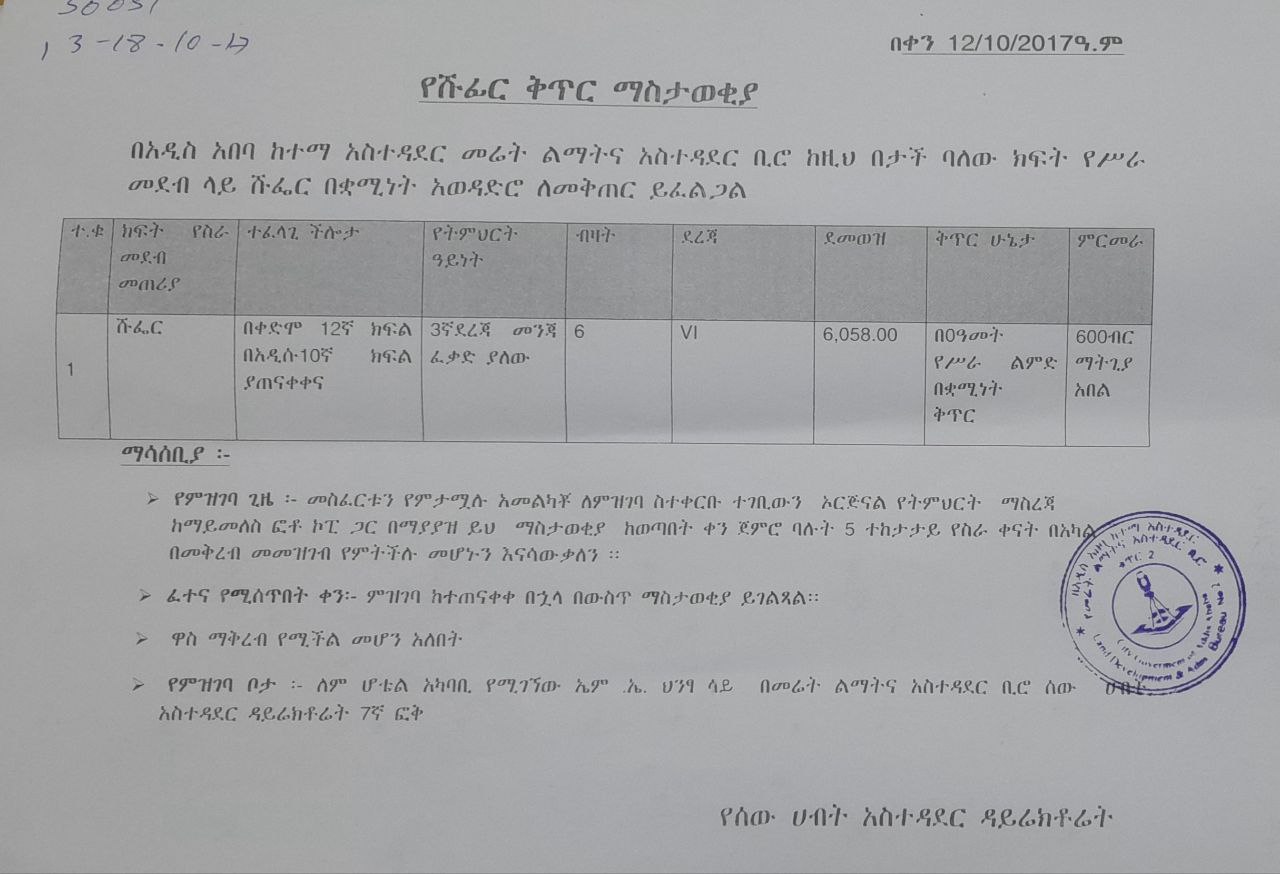 13-18-10-17
በቀን 12/10/2017ዓ.ም
የሹፌር ቅጥር ማስታወቂያ
በአዲስ አበባ ከተማ አስተዳደር መሬት ልማትና አስተዳደር ቢሮ ከዚህ በታች ባለው ክፍት የሥራ
መደብ ላይ ሹፌር በቋሚነት አወዳድሮ ለመቅጠር ይፈልጋል
ተ.ቁ ክፍት የስራ መደብ መጠሪያ ተፈላጊ ችሎታ የትምህርት ዓይነት ብዛት ደረጃ ደመወዝ ቅጥር ሁኔታ ምርመራ
1 ሹፌር በቀድሞ 12ኛ ክፍል በአዲሱ10ኛ ክፍል ያጠናቀቀና 3ኛደረጃ መንጃ ፈቃድ ያለው 6 VI 6,058.00 በ0ዓመት የሥራ ልምድ በቋሚነት ቅጥር 600ብር ማትጊያ አበል
ማሳሰቢያ ፡-
የምዝገባ ጊዜ ፡- መስፈርቱን የምታሟሉ አመልካቾ ለምዝገባ ስተቀርቡ ተገቢውን ኦርጅናል የትምህርት ማስረጃ
ከማይመለስ ፎቶ ኮፒ ጋር በማያያዝ ይህ ማስታወቂያ ከወጣበት ቀን ጀምሮ ባሉት 5 ተከታታይ የስራ ቀናት በአካል
በመቅረብ መመዝገብ የምትችሉ መሆኑን እናሳውቃለን ፡፡
ፈተና የሚሰጥበት ቀን፡- ምዝገባ ከተጠናቀቀ በኋላ በውስጥ ማስታወቂያ ይገልጻል፡፡
ዋስ ማቅረብ የሚችል መሆን አለበት
የምዝገባ ቦታ ፡- ለም ሆቴል አካባቢ የሚገኘው ኤም .ኤ. ህንፃ ላይ በመሬት ልማትና አስተዳደር ቢሮ ሰው ሀብት
አስተዳደር ዳይሬክቶሬት 7ኛ ፎቅ
በአዲስ አበባ ከተማ አስተዳደር
የመሬት ልማትና አስተዳደር ቢሮ
ቁጥር 2
City Government of Addis Ababa
Land Development & Adm Bureau
የሰው ሀብት አስተዳደር ዳይሬክቶሬት